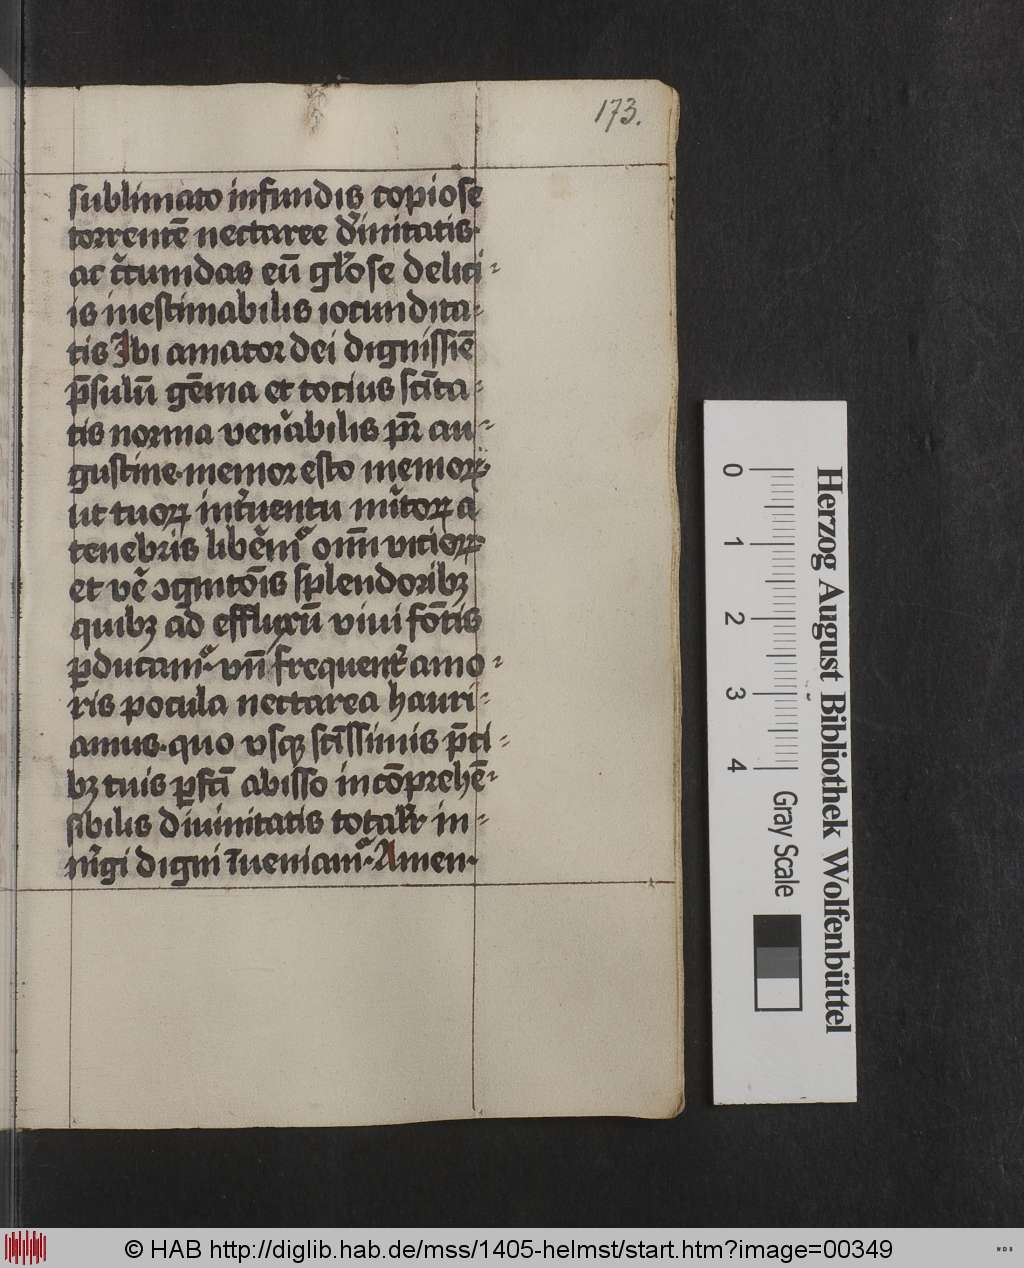 173.
sublimato infundis copiose
torrentē nectaree diuinitatis·
ac c̄cumdas eū gl̄ose delici-
is inestimabilis iocundita-
tis Ibi amator dei dignissīe
p̄sulū gēma et tocius scīta-
tis norma ven̄abilis pr̄ au-
gustine· memor esto memorꝝ
ut tuoꝝ int̄uentu mītoꝝ a
tenebris libēmꝰ om̄i vicioꝝ
et vē ꝯgnitōis splendoribꝫ
quibꝫ ad effluxū viui fōtis
ꝑducamꝰ· vn̄ frequent̄ amo-
ris pocula nectarea hauri-
amus· quo vsqꝫ sctīssimis p̄ci-
bꝫ tuis ꝑfcī abisso incōprehē-
sibilis diuinitatis totalit̄ in-
m̄gi digni īueniamꝰ· Amen·
0
1
2
3
4
Gray Scale
Herzog August Bibliothek Wolfenbüttel
© HAB http://diglib.hab.de/mss/1405-helmst/start.htm?image=00349